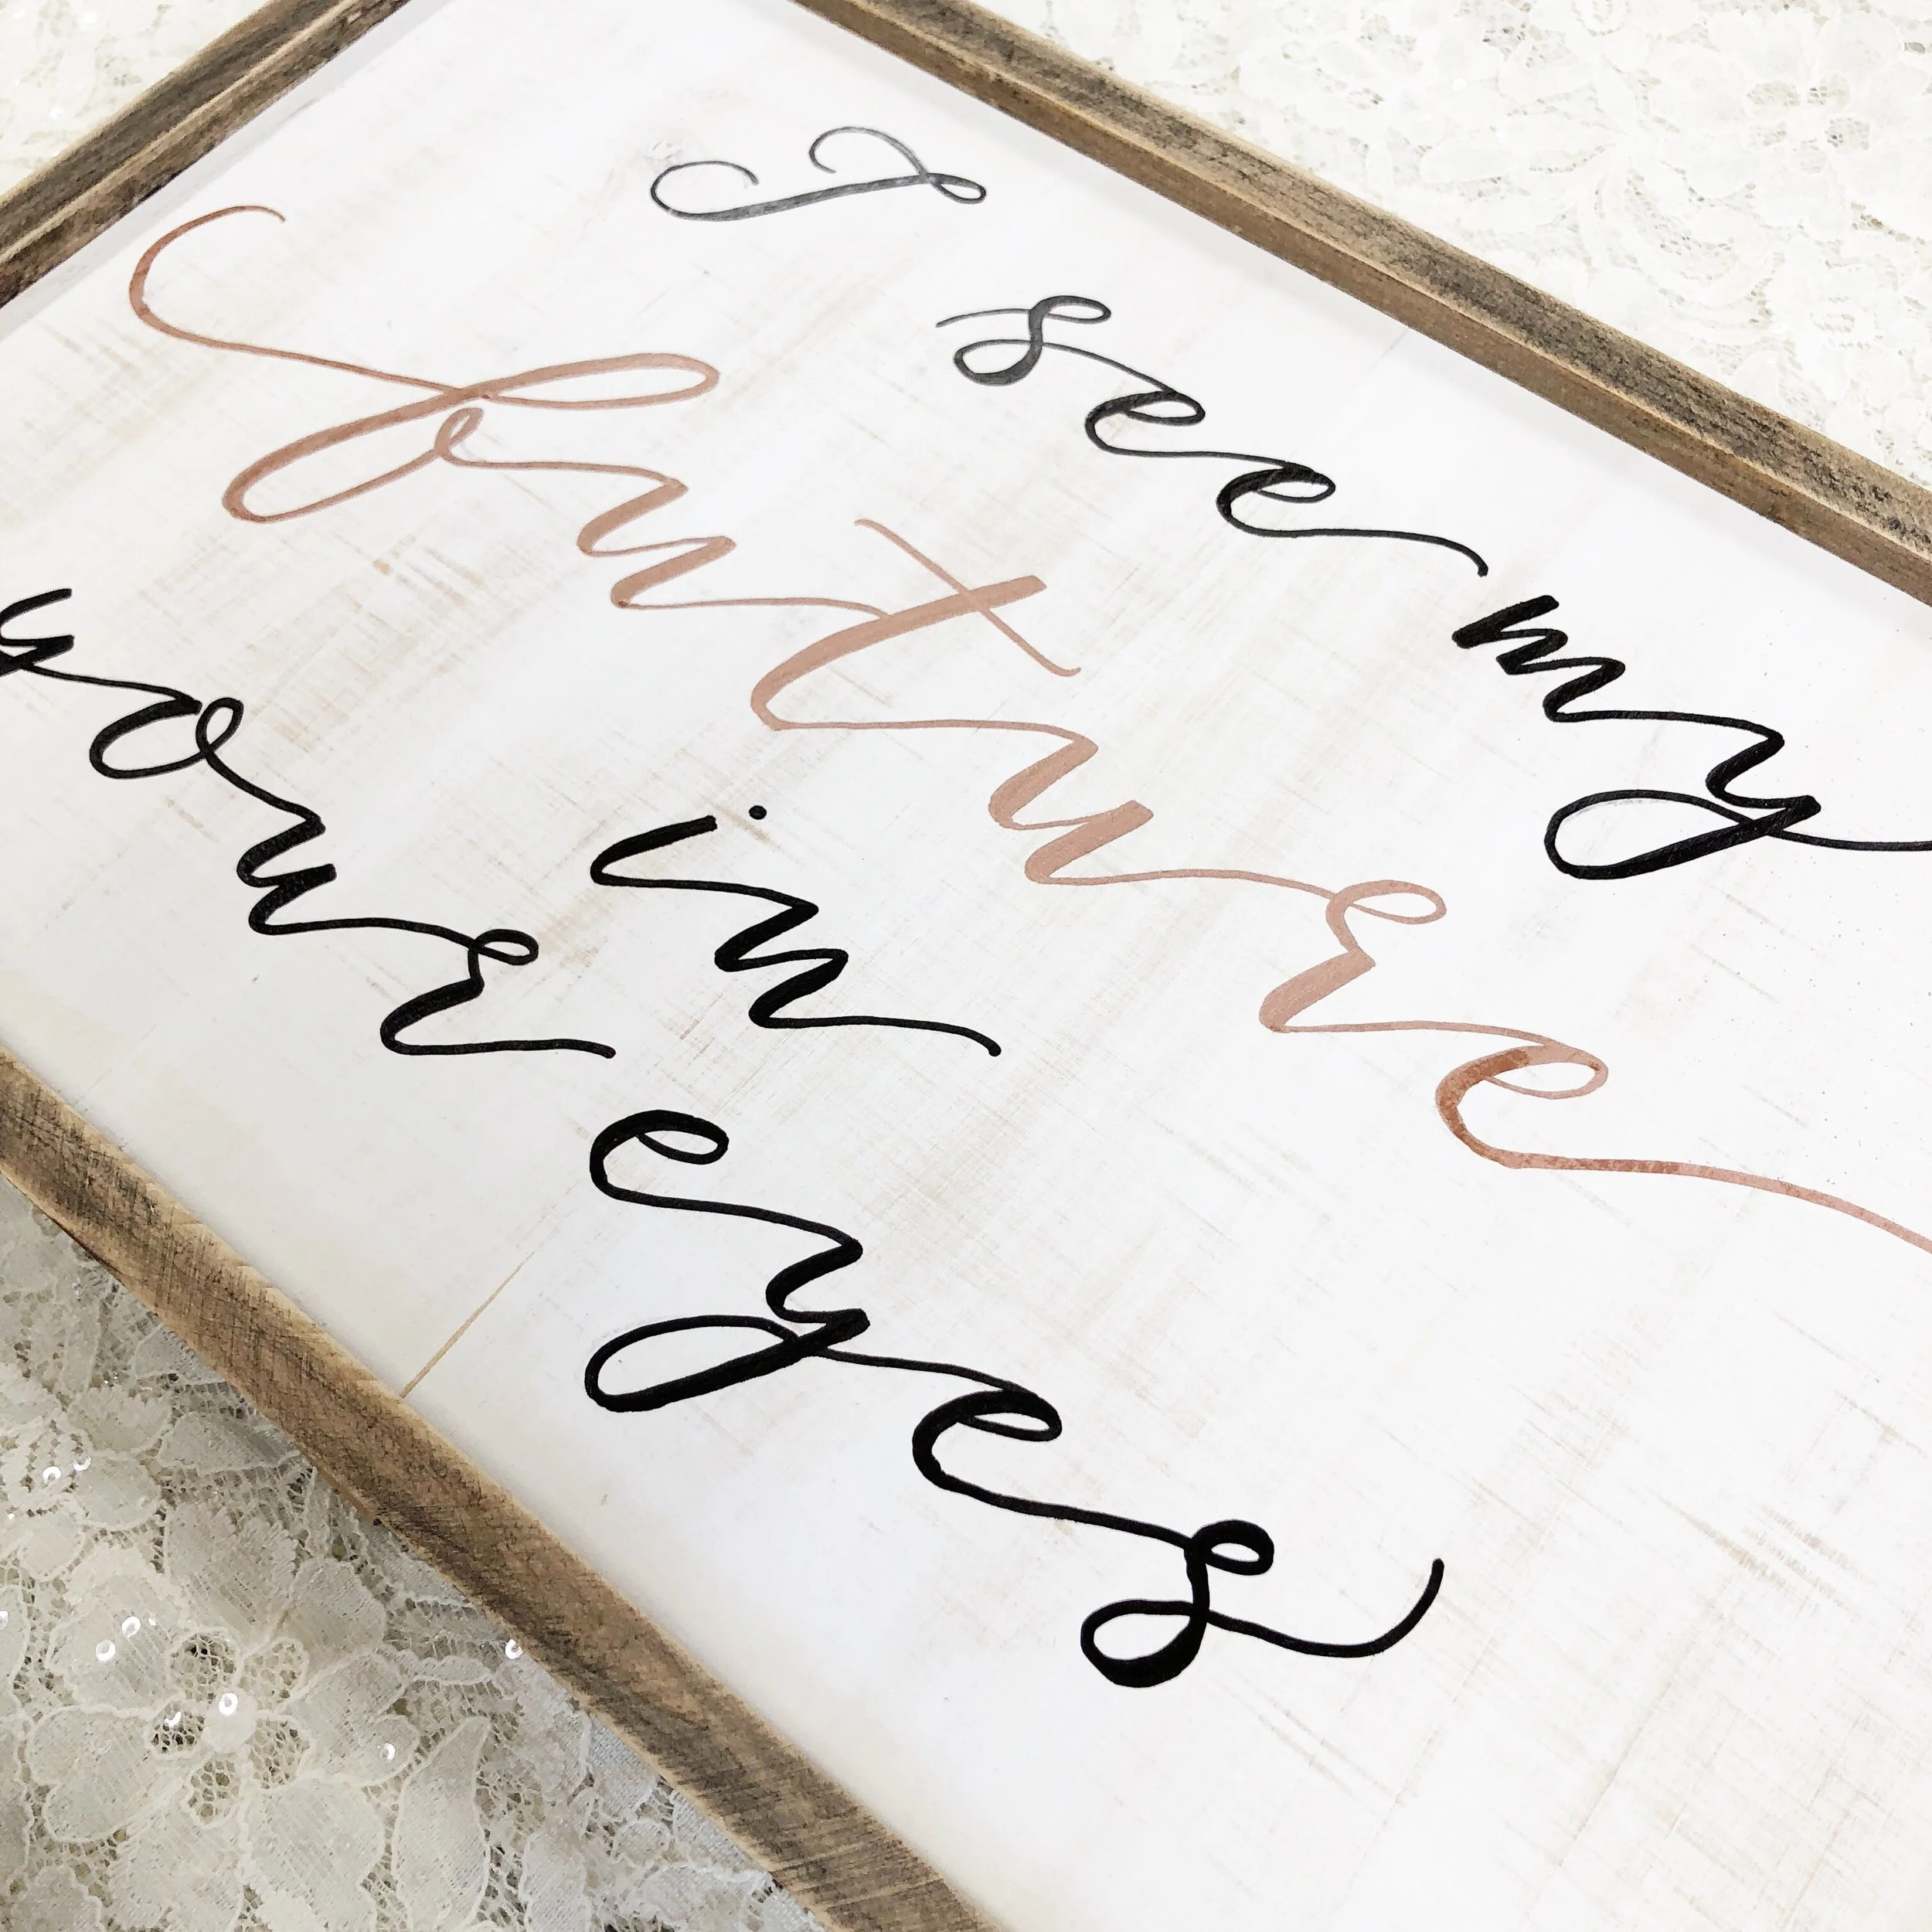 I see my
future
in
your eyes